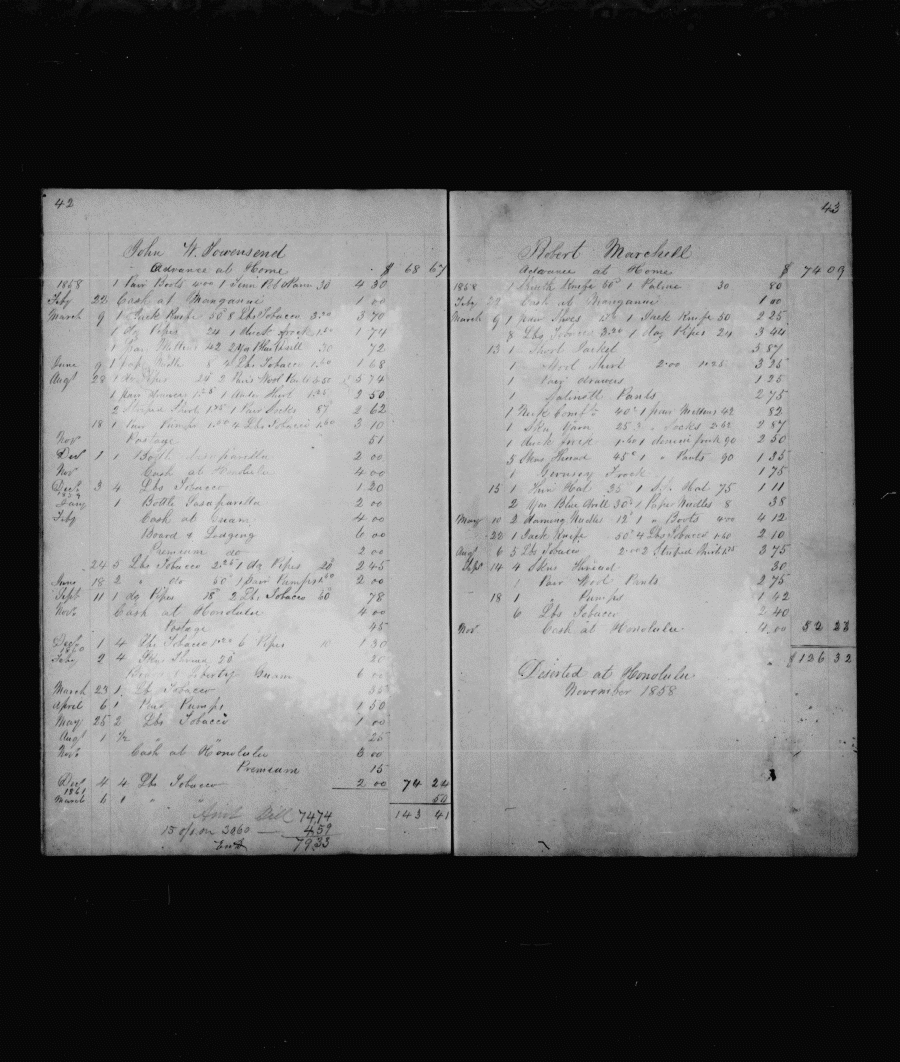 42
John W. Townsend
Advance at Home $ 68 67
1858 1 Pair Boots 4 00 1 30 4 30
Feby 22 Cash at Manganui 1 00
March 9 1 Knife 50 8 Lbs Tobacco 3.20 3 70
1 Dz Pipes 24 1 Duck frock 1.50 1 74
1 Pair Mittens 42 2 Yds 30 72
June 9 1 8 4 Lbs Tobacco 1.60 1 68
Augt 28 1 dz Pipes 24 2 Pairs Wool Pants 5 50 5 74
1 pair drawers 1.25 1 under Shirt 1.25 2 50
2 Striped Shirt 1.75 1 Pair Socks 87 2 62
18 1 Pair Pumps 1.50 4 Lbs Tobacco 1.60 3 10
Nov Postage 51
Decr 1 1 Bottle Sarsaparella 2 00
Nov Cash at Honolulu 4 00
Decr 3 4 Lbs Tobacco 1 20
1859
Jany 1 Bottle Sasaparella 2 00
Feby Cash at Guam 4 00
Board & Lodging 6 00
Premium do 2 00
24 5 Lbs Tobacco 2.25 1 dz Pipes 20 2 45
June 18 2 " do 60 1 Pair Pumps 1.40 2 00
Sept 11 1 dz Pipes 18 2 Lbs Tobacco 60 78
Nov Cash at Honolulu 4 00
Postage 45
Decr 1 4 Lbs Tobacco 1.20 6 Pipes 10 1 30
1860
Feby 2 4 20 20
Liberty Guam 6 00
March 23 1 Lb Tobacco 35
April 6 1 Pair Pumps 1 50
May 25 2 Lbs Tobacco 1 00
Augt 1 1/2 " " 25
Nov Cash at Honolulu 3 00
Premium 15
Decr 4 4 Lbs Tobacco 2 00 74 24
1861
March 6 1 " " 50
143 41
Amt Bill 74,74
15 o/o on 3060 4.59
79,33
43
Robert Marchell
Advance at Home $ 74 09
1858 1 Sheath Knife 50 1 30 80
Feby 22 Cash at Manganui 1 00
March 9 1 pair Shoes 1 Jack Knife 50 2 25
8 Lbs Tobacco 3.20 1 Doz Pipes 24 3 44
13 1 Short Jacket 5 87
1 Wool Shirt 2.00 1.25 3 25
1 Pair drawers 1 25
1 Pants 2 75
1 Neck Comft 40 1 pair Mittens 42 82
1 Skn Yarn 25 3 " Socks 2.62 2 87
1 duck frock 1.60 1 denim frock 90 2 50
5 Skns Thread 45 1 " Pants 90 1 35
1 Gernsey Frock 1 75
15 1 Hat 36 1 Hat 75 1 11
2 Yds Blue drill 30 1 Paper Needles 8 38
May 10 2 Darning Needles 12 1 " Boots 4.00 4 12
22 1 Jack Knife 50 4 Lbs Tobacco 1.60 2 10
Augt 6 5 Lbs Tobacco 2.00 2 Striped Shirt 1.75 3 75
Sept 14 4 Skns Thread 30
1 Pair Wool Pants 2 75
18 1 " Pumps 1 42
6 Lbs Tobacco 2 40
Nov Cash at Honolulu 4.00 52 23
$ 126 32
Diserted at Honolulu
November 1858